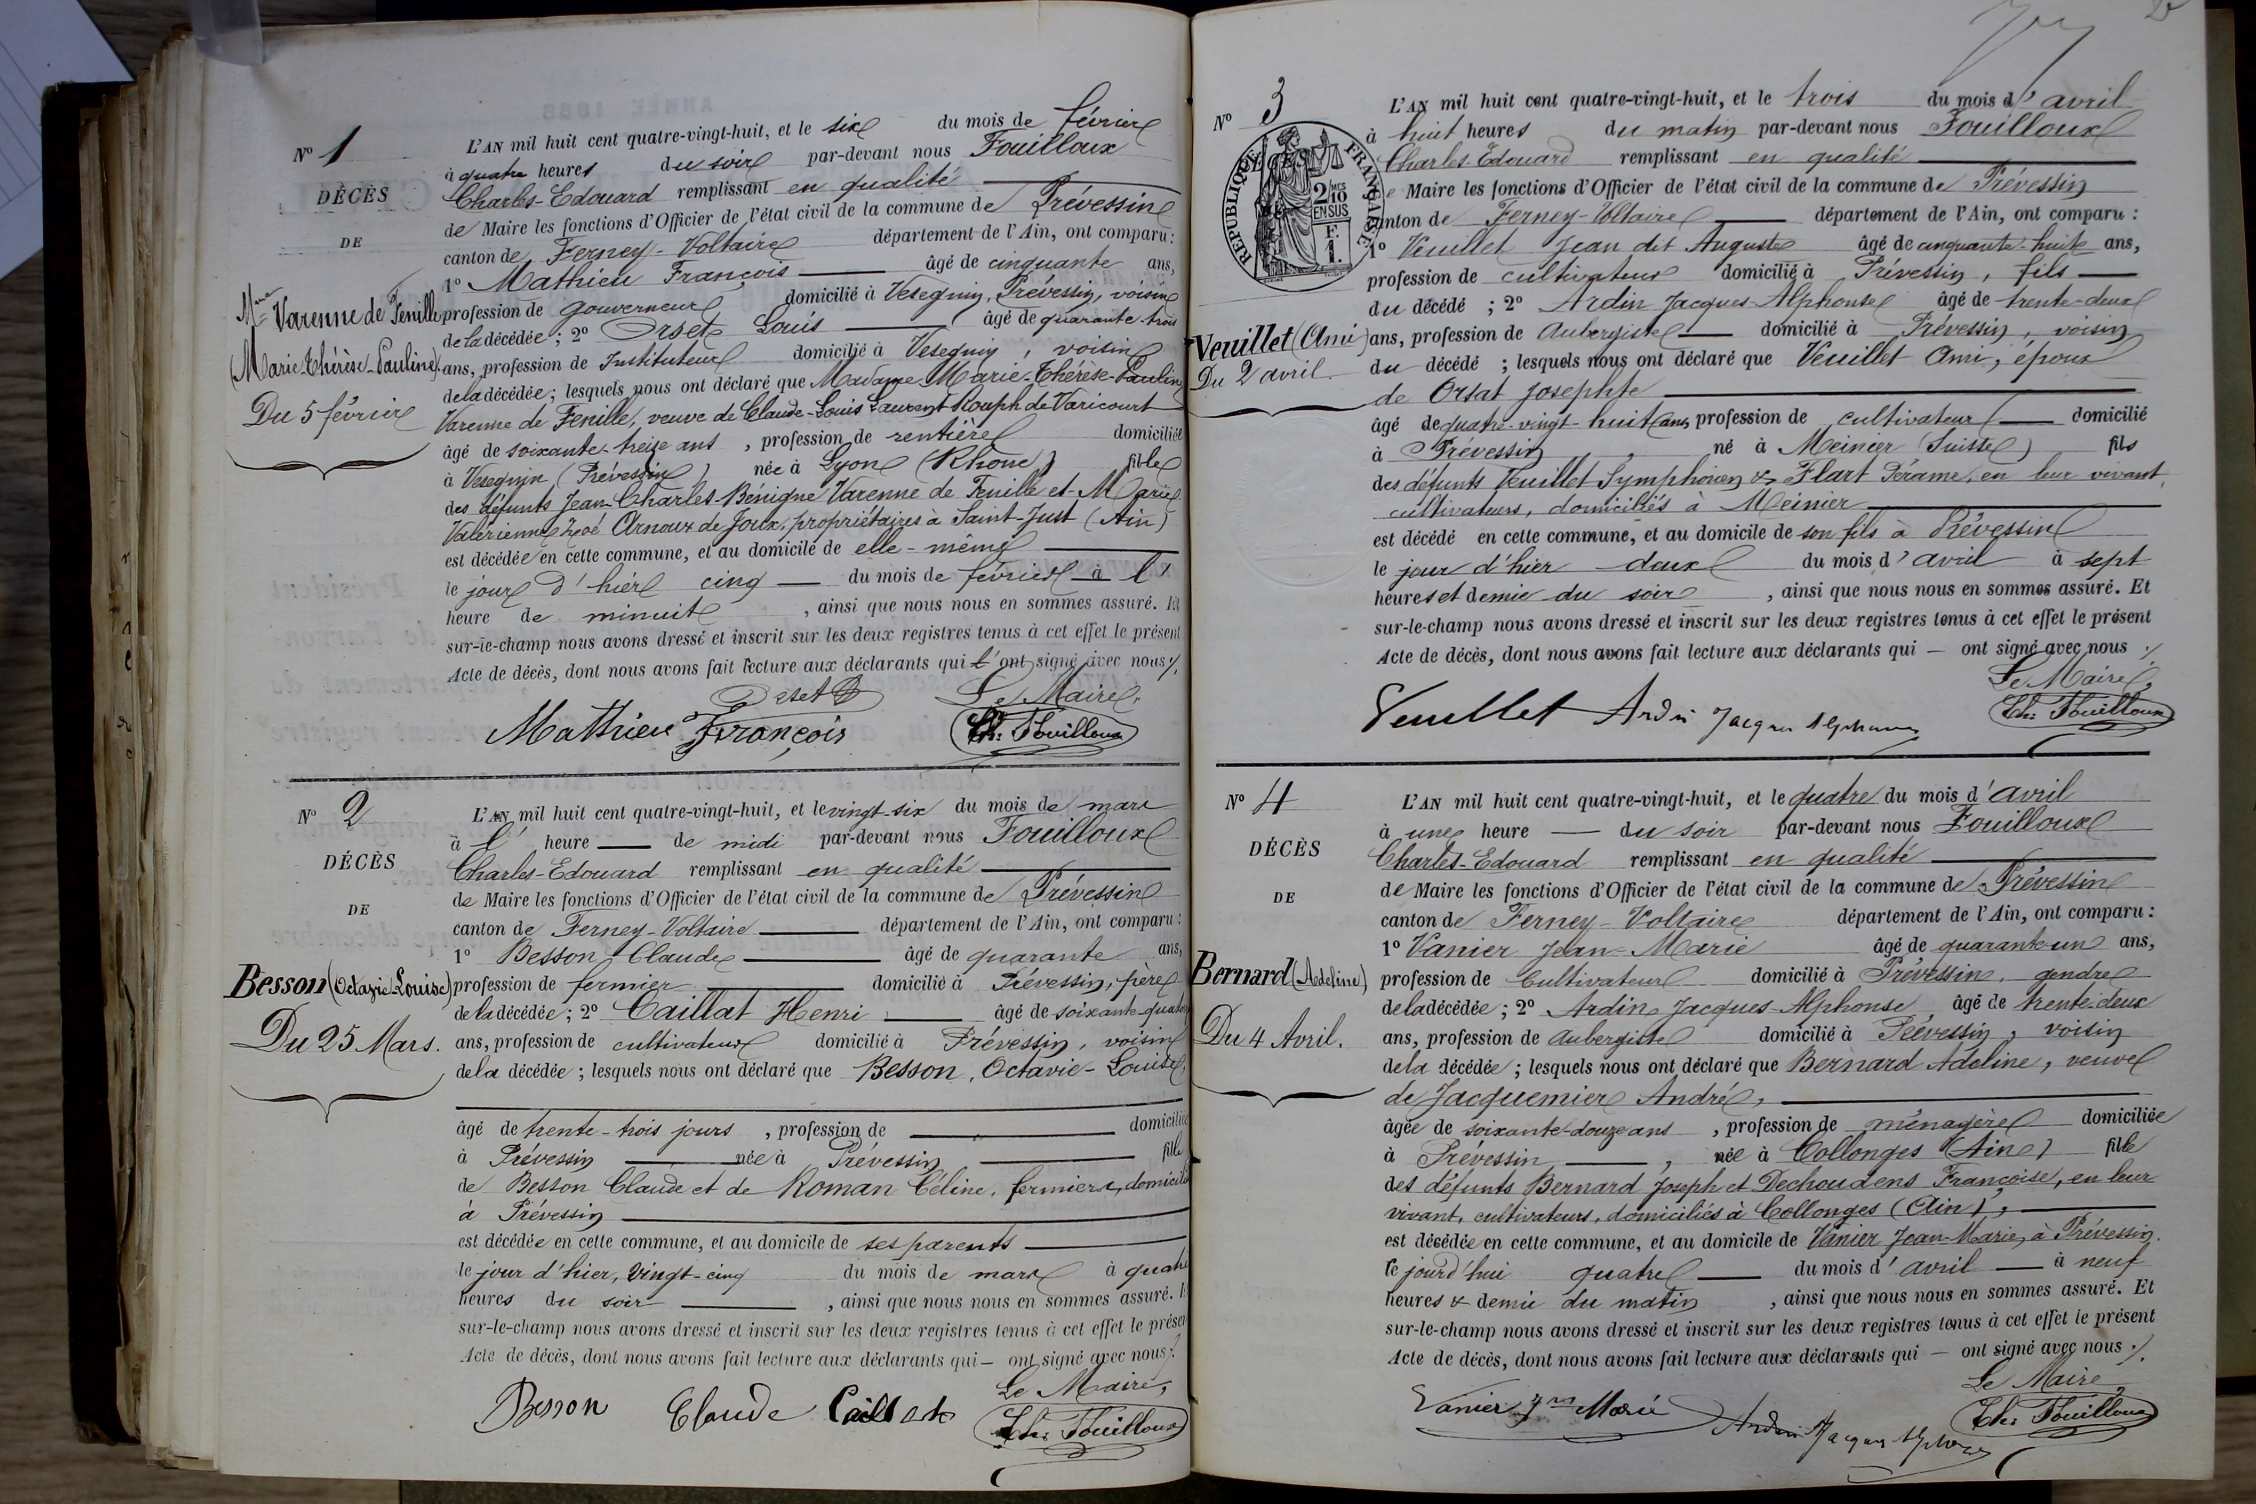 Nº 1
DÉCÈS
DE
Mme Varenne de Fenille
(Marie-Thérèse-Pauline)
Du 5 février
L'AN mil huit cent quatre-vingt-huit, et le six du mois de février
à quatre heures du soir par-devant nous Fouilloux
Charles-Edouard remplissant en qualité
de Maire les fonctions d'Officier de l'état civil de la commune de Prévessin
canton de Ferney-Voltaire département de l'Ain, ont comparu :
1º Mathieu François âgé de cinquante ans,
profession de gouverneur domicilié à Vesegnin, Prévessin, voisin
de la décédée ; 2º Orset Louis âgé de quarante-trois
ans, profession de Instituteur domicilié à Vesegnin, voisin
de la décédée ; lesquels nous ont déclaré que Madame Marie-Thérèse-Pauline
Varenne de Fenille, veuve de Claude-Louis Laurent Rouph de Varicourt
âgé de soixante-treize ans, profession de rentière domiciliée
à Vesegnin (Prévessin) née à Lyon (Rhône) fille
des défunts Jean-Charles-Bénigne Varenne de Fenille et Marie
Valérienne Zoé Arnoux de Joux, propriétaires à Saint-Just (Ain)
est décédée en cette commune, et au domicile de elle-même
le jour d'hier cinq du mois de février à l'
heure de minuit, ainsi que nous nous en sommes assuré. Et
sur-le-champ nous avons dressé et inscrit sur les deux registres tenus à cet effet le présent
Acte de décès, dont nous avons fait lecture aux déclarants qui l'ont signé avec nous ./.
Orset Le Maire,
Mathieu François Ch: Fouilloux
Nº 2
DÉCÈS
DE
Besson (Octavie-Louise)
Du 25 Mars.
L'AN mil huit cent quatre-vingt-huit, et le vingt-six du mois de mars
à l' heure de midi par-devant nous Fouilloux
Charles-Edouard remplissant en qualité
de Maire les fonctions d'Officier de l'état civil de la commune de Prévessin
canton de Ferney-Voltaire département de l'Ain, ont comparu :
1º Besson Claude âgé de quarante ans,
profession de fermier domicilié à Prévessin, père
de la décédée ; 2º Caillat Henri âgé de soixante-quatorze
ans, profession de cultivateur domicilié à Prévessin, voisin
de la décédée ; lesquels nous ont déclaré que Besson, Octavie-Louise,
âgé de trente-trois jours, profession de domiciliée
à Prévessin née à Prévessin fille
de Besson Claude et de Roman Céline, fermiers, domiciliés
à Prévessin
est décédée en cette commune, et au domicile de ses parents
le jour d'hier, vingt-cinq du mois de mars à quatre
heures du soir, ainsi que nous nous en sommes assuré. Et
sur-le-champ nous avons dressé et inscrit sur les deux registres tenus à cet effet le présent
Acte de décès, dont nous avons fait lecture aux déclarants qui — ont signé avec nous ./.
Le Maire,
Besson Claude Caillat Ch: Fouilloux
Nº 3
RÉPUBLIQUE FRANÇAISE
2 MES
10
EN SUS
F.
1.
Veuillet (Ami)
Du 2 avril
L'AN mil huit cent quatre-vingt-huit, et le trois du mois d'avril
à huit heures du matin par-devant nous Fouilloux
Charles Edouard remplissant en qualité
de Maire les fonctions d'Officier de l'état civil de la commune de Prévessin
canton de Ferney-Voltaire département de l'Ain, ont comparu :
1º Veuillet Jean dit Auguste âgé de cinquante-huit ans,
profession de cultivateur domicilié à Prévessin, fils
du décédé ; 2º Ardin Jacques-Alphonse âgé de trente-deux
ans, profession de Aubergiste domicilié à Prévessin, voisin
du décédé ; lesquels nous ont déclaré que Veuillet Ami, époux
de Orsat Josephte
âgé de quatre-vingt-huit ans, profession de cultivateur domicilié
à Prévessin, né à Meinier (Suisse) fils
des défunts Veuillet Symphorien & Flart Pérame, en leur vivant,
cultivateurs, domiciliés à Meinier
est décédé en cette commune, et au domicile de son fils à Prévessin
le jour d'hier deux du mois d'avril à sept
heures et demie du soir, ainsi que nous nous en sommes assuré. Et
sur-le-champ nous avons dressé et inscrit sur les deux registres tenus à cet effet le présent
Acte de décès, dont nous avons fait lecture aux déclarants qui — ont signé avec nous ./.
Le Maire,
Veuillet Ardin Jacques Alphonse Ch: Fouilloux
Nº 4
DÉCÈS
DE
Bernard (Adeline)
Du 4 Avril.
L'AN mil huit cent quatre-vingt-huit, et le quatre du mois d'avril
à une heure du soir par-devant nous Fouilloux
Charles-Edouard remplissant en qualité
de Maire les fonctions d'Officier de l'état civil de la commune de Prévessin
canton de Ferney-Voltaire département de l'Ain, ont comparu :
1º Vanier Jean-Marie âgé de quarante-un ans,
profession de Cultivateur domicilié à Prévessin, gendre
de la décédée ; 2º Ardin Jacques-Alphonse, âgé de trente-deux
ans, profession de Aubergiste domicilié à Prévessin, voisin
de la décédée ; lesquels nous ont déclaré que Bernard Adeline, veuve
de Jacquemier André,
âgée de soixante-douze ans, profession de ménagère domiciliée
à Prévessin, née à Collonges (Ain) fille
des défunts Bernard Joseph et Dechoudens Françoise, en leur
vivant, cultivateurs, domiciliés à Collonges (Ain),
est décédée en cette commune, et au domicile de Vanier Jean-Marie, à Prévessin.
le jourd'hui quatre du mois d'avril à neuf
heures & demie du matin, ainsi que nous nous en sommes assuré. Et
sur-le-champ nous avons dressé et inscrit sur les deux registres tenus à cet effet le présent
Acte de décès, dont nous avons fait lecture aux déclarants qui — ont signé avec nous ./.
Le Maire,
Vanier Jn Marie Ardin Jacques Alphonse Ch: Fouilloux